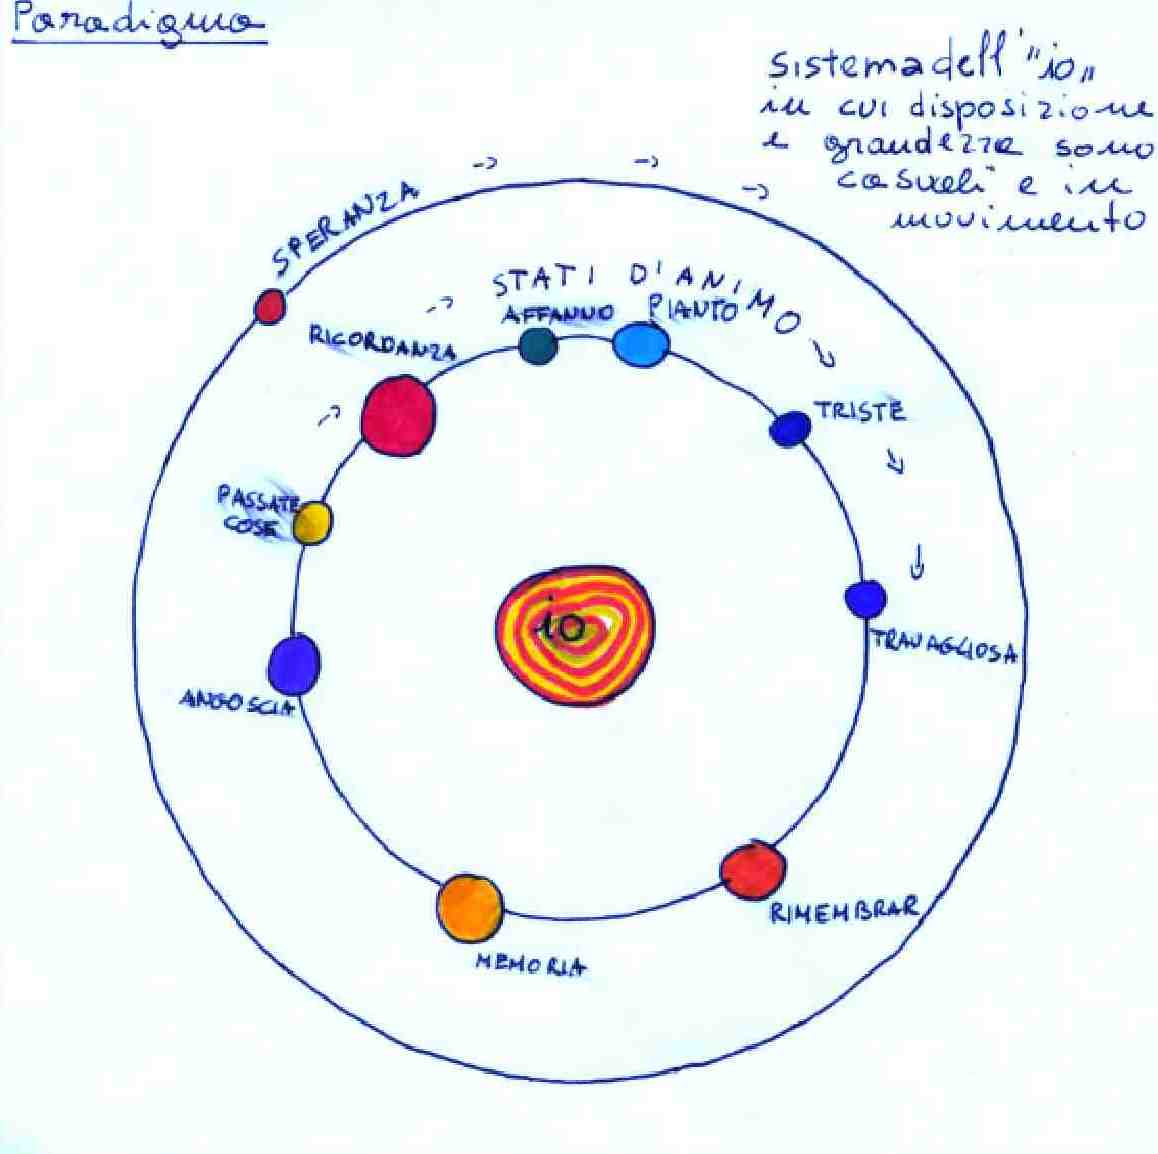 Paradigma
sistema dell'"io"
in cui disposizione
e grandezza sono
casuali e in
movimento
SPERANZA
STATI D'ANIMO
AFFANNO
PIANTO
RICORDANZA
TRISTE
PASSATE
COSE
io
TRAVAGLIOSA
ANGOSCIA
RIMEMBRAR
MEMORIA